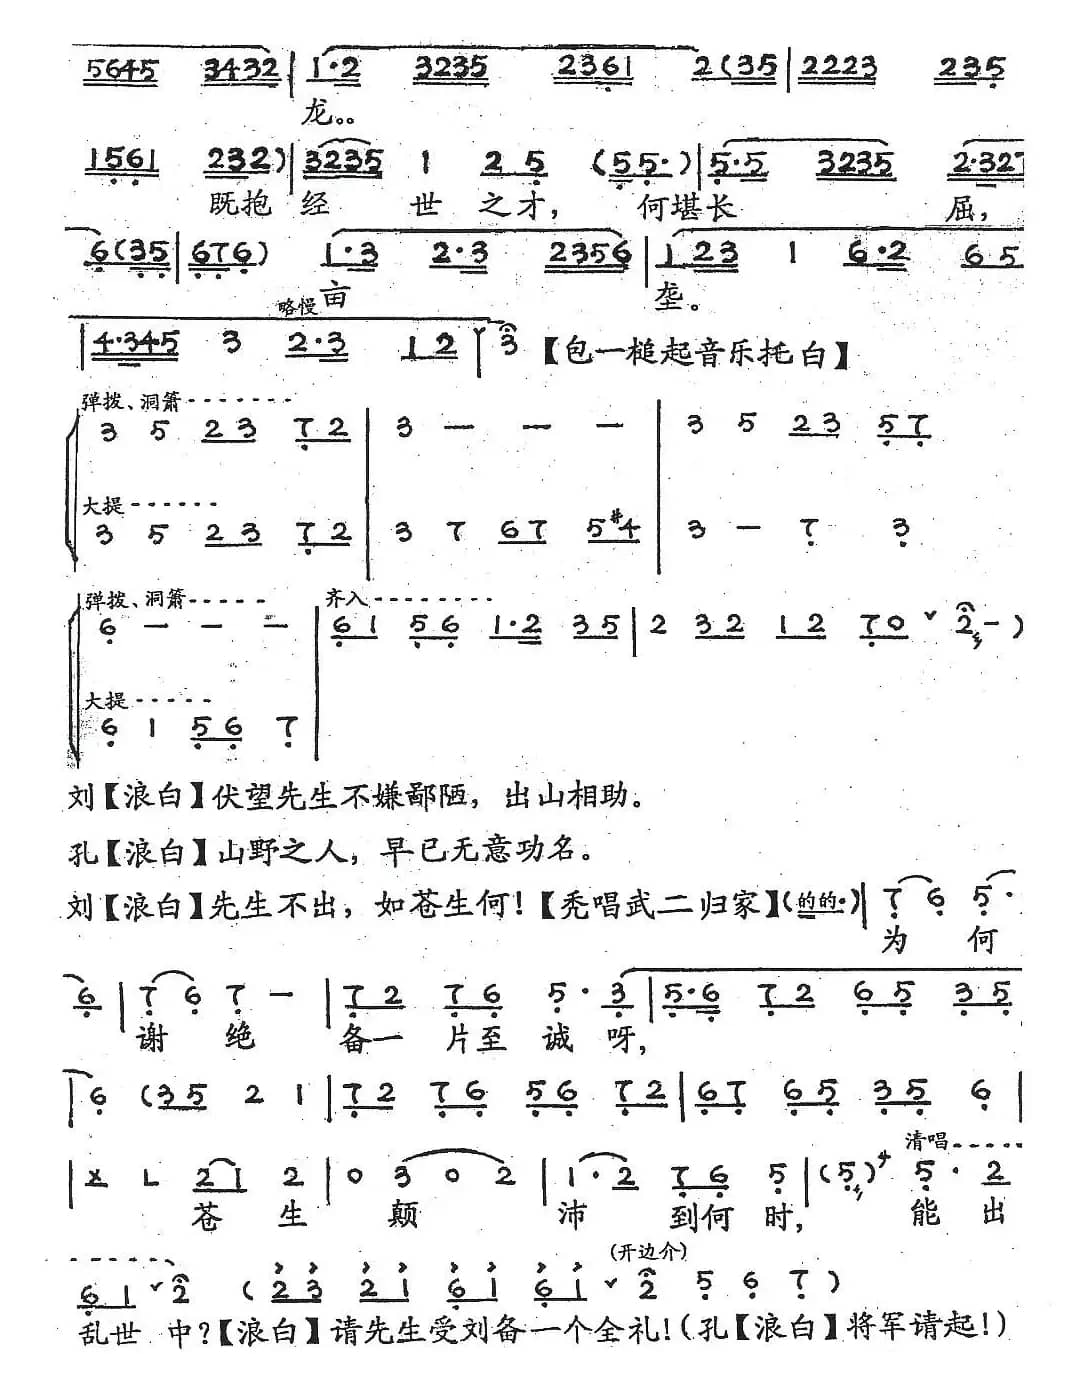 5645 3432 | 1·2 3235 2361 2(35 | 2223 235
龙。。
1561 232) | 3235 1 2 5 (55·) | 5·5 3235 2·327
既抱 经 世 之才， 何堪长 屈，
6(35 | 676) 1·3 2·3 2356 | 123 1 6·2 65
略慢 亩 垄。
| 4·345 3 2·3 12 3 【包一槌起音乐托白】
弹拨、洞箫
3 5 23 72 | 3 — — — | 3 5 23 57
大提
3 5 23 72 | 3 7 67 5#4 | 3 — 7 3
弹拨、洞箫 齐入
6 — — — | 61 56 1·2 35 | 2 32 12 70 2 —)
大提
6 1 56 7
刘【浪白】伏望先生不嫌鄙陋，出山相助。
孔【浪白】山野之人，早已无意功名。
刘【浪白】先生不出，如苍生何！【秃唱武二归家】(的的·) | 7 6 5·
为 何
6 | 7 6 7 — | 72 76 5· 3 | 5·6 72 65 35
谢 绝 备一 片至 诚 呀，
6 (35 2 1 | 72 76 56 72 | 67 65 35 6 |
清唱
| X L 21 2 | 0 3 0 2 | 1·2 76 5 | (5) 5· 2
苍 生 颠 沛 到何 时， 能 出
(开边介)
61 2 (23 21 61 61 2 5 6 7)
乱世 中？【浪白】请先生受刘备一个全礼！(孔【浪白】将军请起！)